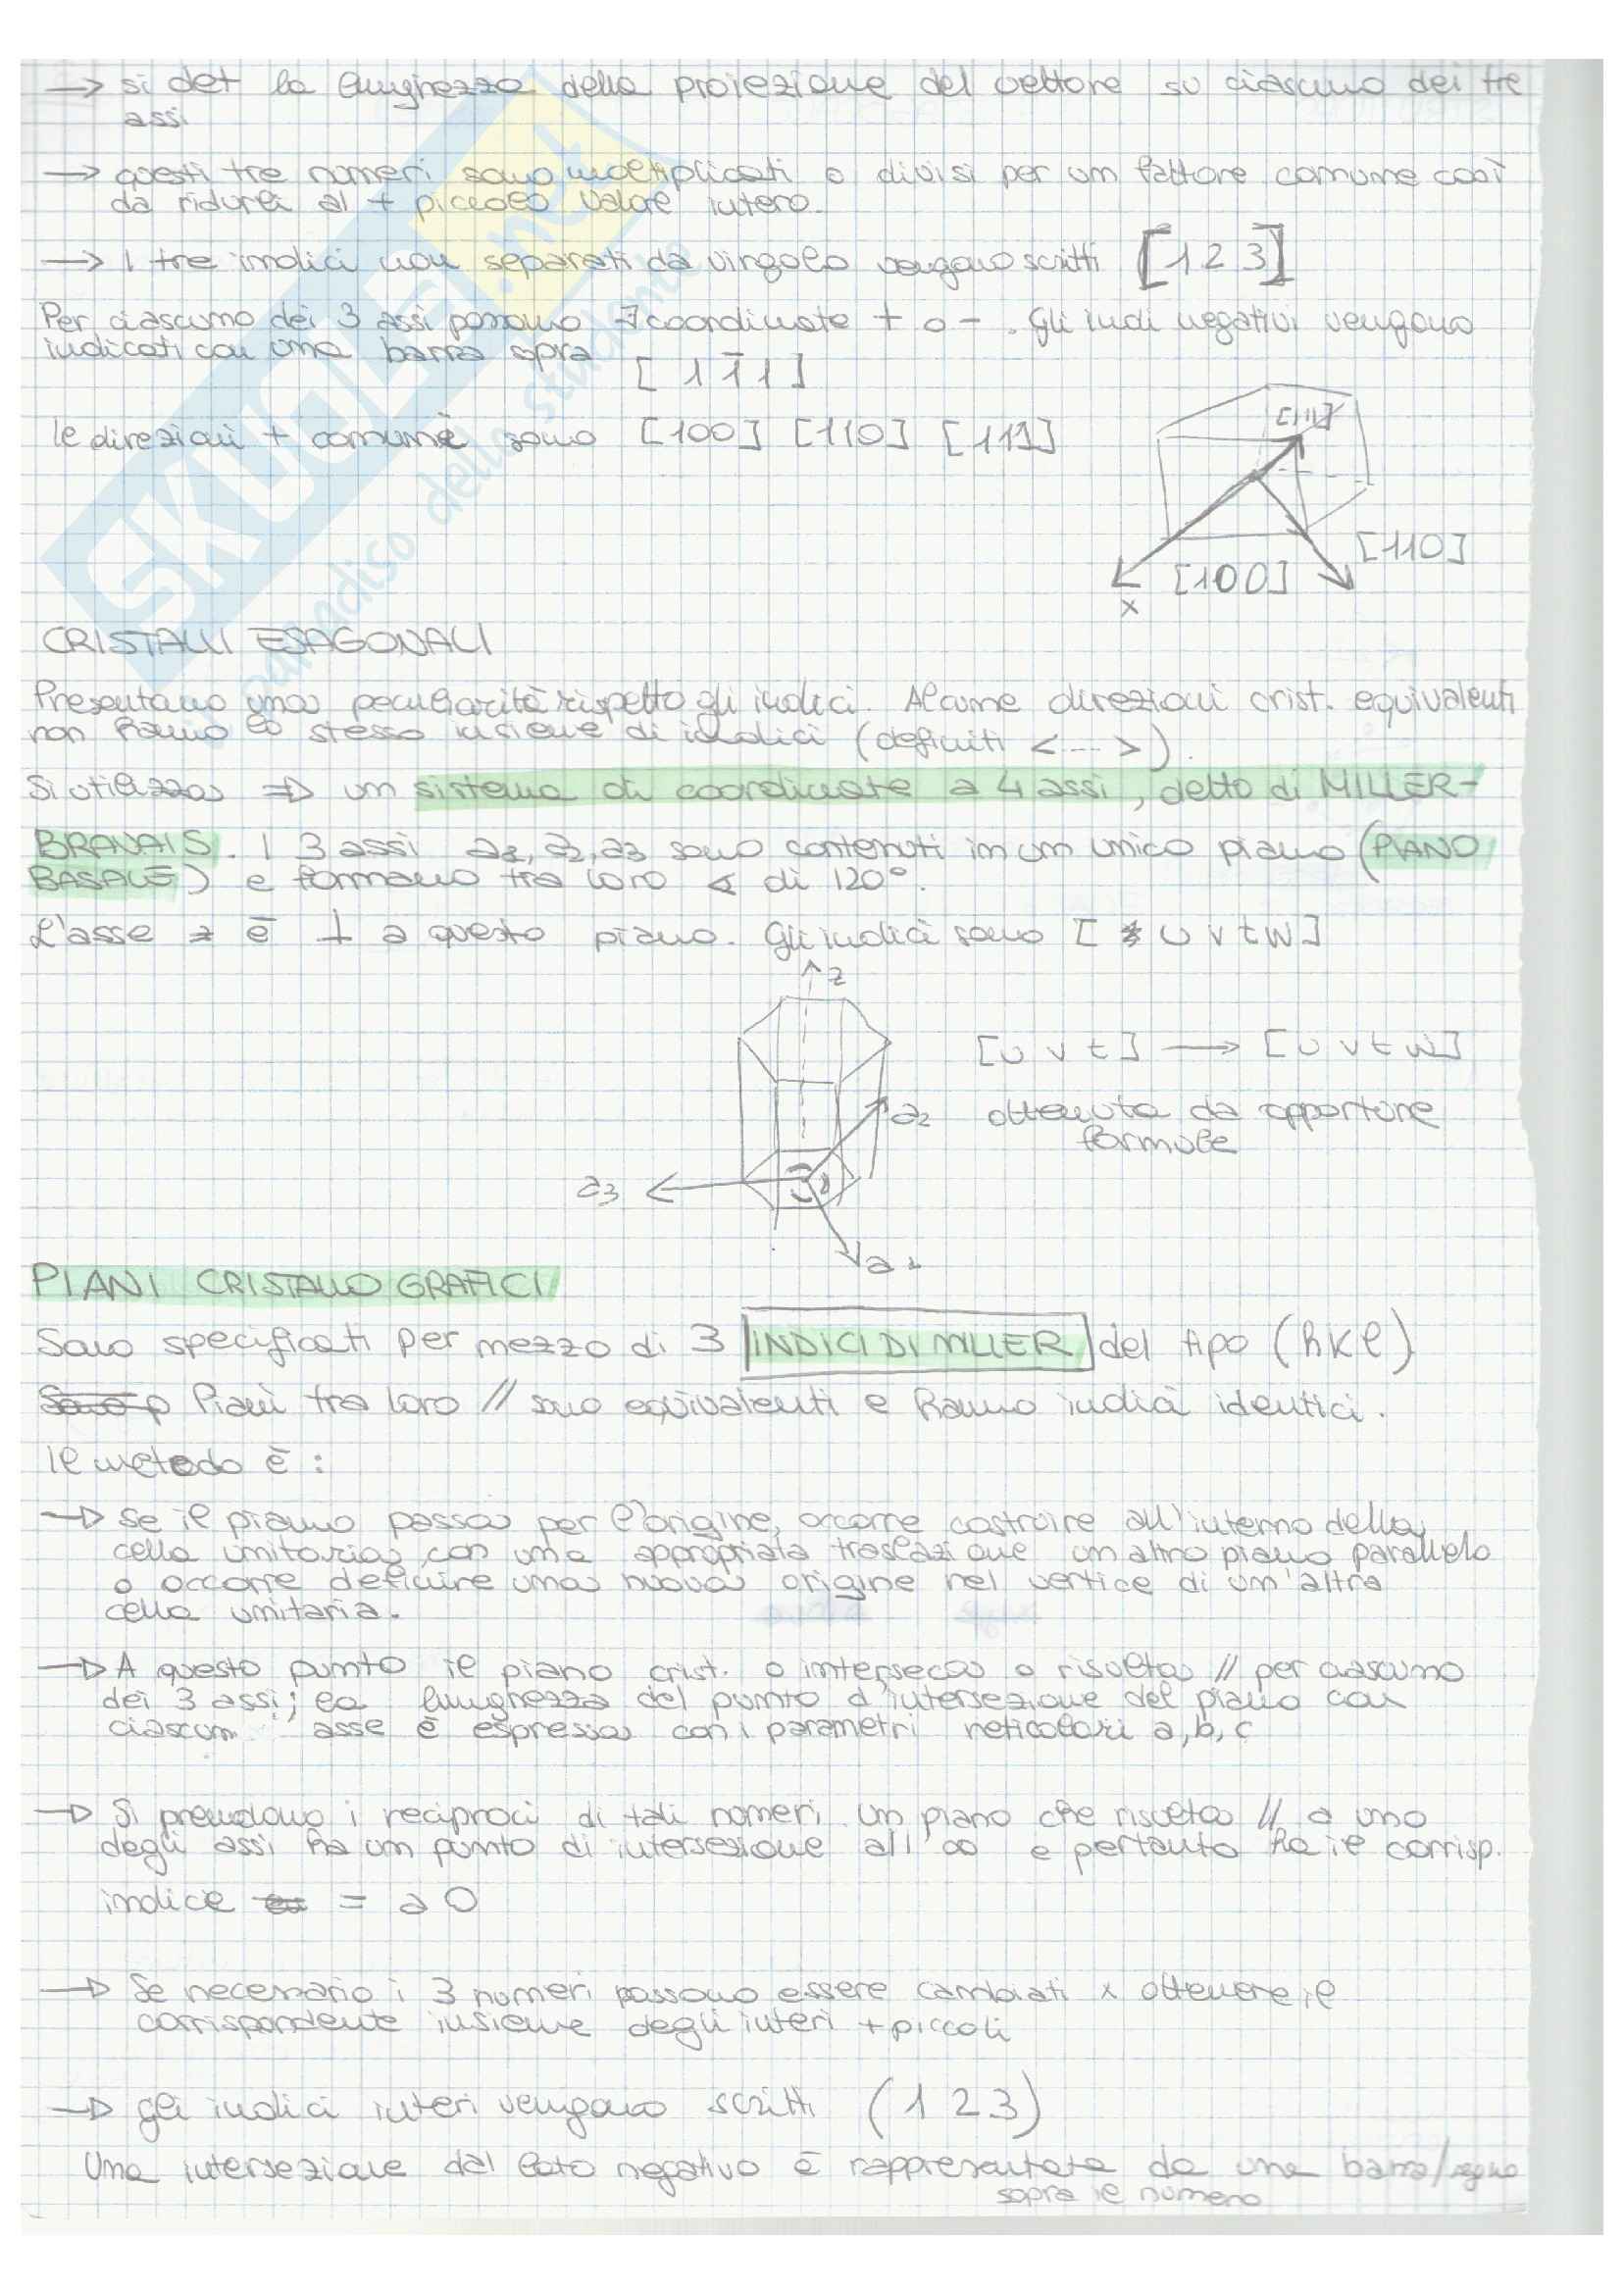 → si det la lunghezza della proiezione del vettore su ciascuno dei tre
assi
→ questi tre numeri sono moltiplicati o divisi per un fattore comune così
da ridurli al + piccolo valore intero.
→ I tre indici non separati da virgola vengono scritti [1 2 3]
Per ciascuno dei 3 assi possono ∃ coordinate + o - . Gli indi negativi vengono
indicati con una barra sopra
[ 1 1̄ 1 ]
le direzioni + comuni sono [100] [110] [111]
[111]
[110]
[100]
x
CRISTALLI ESAGONALI
Presentano una peculiarità rispetto gli indici. Alcune direzioni crist. equivalenti
non hanno lo stesso insieme di indici (definiti <--->).
Si utilizza ⇒ un sistema di coordinate a 4 assi, detto di MILLER-
BRAVAIS. I 3 assi a1, a2, a3 sono contenuti in un unico piano (PIANO
BASALE) e formano tra loro ∢ di 120°.
L'asse z è ⊥ a questo piano. Gli indici sono [ u v t w]
z
[u v t] → [u v t w]
a2 ottenuta da opportune
formule
a3
a1
PIANI CRISTALLOGRAFICI
Sono specificati per mezzo di 3 INDICI DI MILLER del tipo (h k l)
Piani tra loro // sono equivalenti e hanno indici identici.
Il metodo è :
→ Se il piano passa per l'origine, occorre costruire all'interno della
cella unitaria, con una appropriata traslazione un altro piano parallelo
o occorre definire una nuova origine nel vertice di un'altra
cella unitaria.
→ A questo punto il piano crist. o interseca o risulta // per ciascuno
dei 3 assi; la lunghezza del punto d'intersezione del piano con
ciascun asse è espressa con i parametri reticolari a, b, c
→ Si prendono i reciproci di tali numeri. Un piano che risulta // a uno
degli assi ha un punto di intersezione all'∞ e pertanto ha il corrisp.
indice = a 0
→ Se necessario i 3 numeri possono essere cambiati x ottenere il
corrispondente insieme degli interi + piccoli
→ gli indici interi vengono scritti (1 2 3)
Una intersezione dal lato negativo è rappresentata da una barra/segno
sopra il numero
SKUOLA.net
il paradiso dello studente